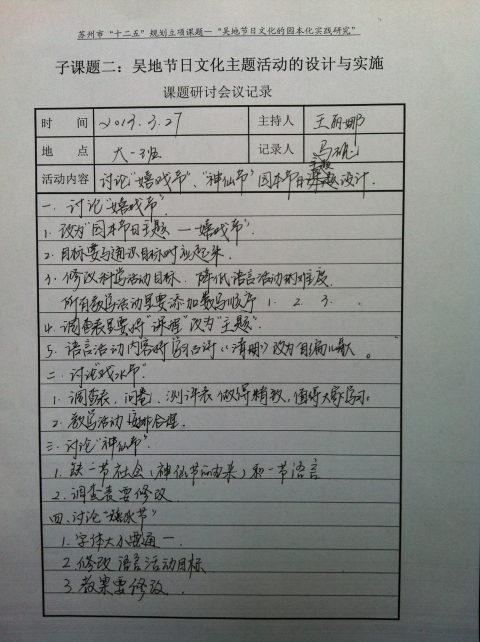 苏州市“十二五”规划立项课题—“吴地节日文化的园本化实践研究”
子课题二：吴地节日文化主题活动的设计与实施
课题研讨会议记录
时 间 2013.3.27 主持人 王丽娜
地 点 大一班 记录人
活动内容 讨论“嬉戏节”、“神仙节”园本节日主题设计.
一. 讨论“嬉戏节”
1. 改为“园本节日主题 — 嬉戏节”
2. 目标要与通识目标对应起来.
3. 修改科学活动目标. 降低语言活动的难度.
所有教学活动里要添加教学顺序 1. 2. 3.
4. 调查表里要将“课程”改为“主题”.
5. 语言活动内容将学习古诗《清明》改为自编儿歌。
二. 讨论“戏水节”.
1. 调查表, 问卷, 测评表做得精致, 值得大家学习.
2. 教学活动安排合理.
三. 讨论“神仙节”.
1. 缺一节社会(神仙节的由来)和一节语言
2. 调查表要修改.
四. 讨论“水节”
1. 字体大小要统一.
2. 修改语言活动目标.
3. 教案要修改.